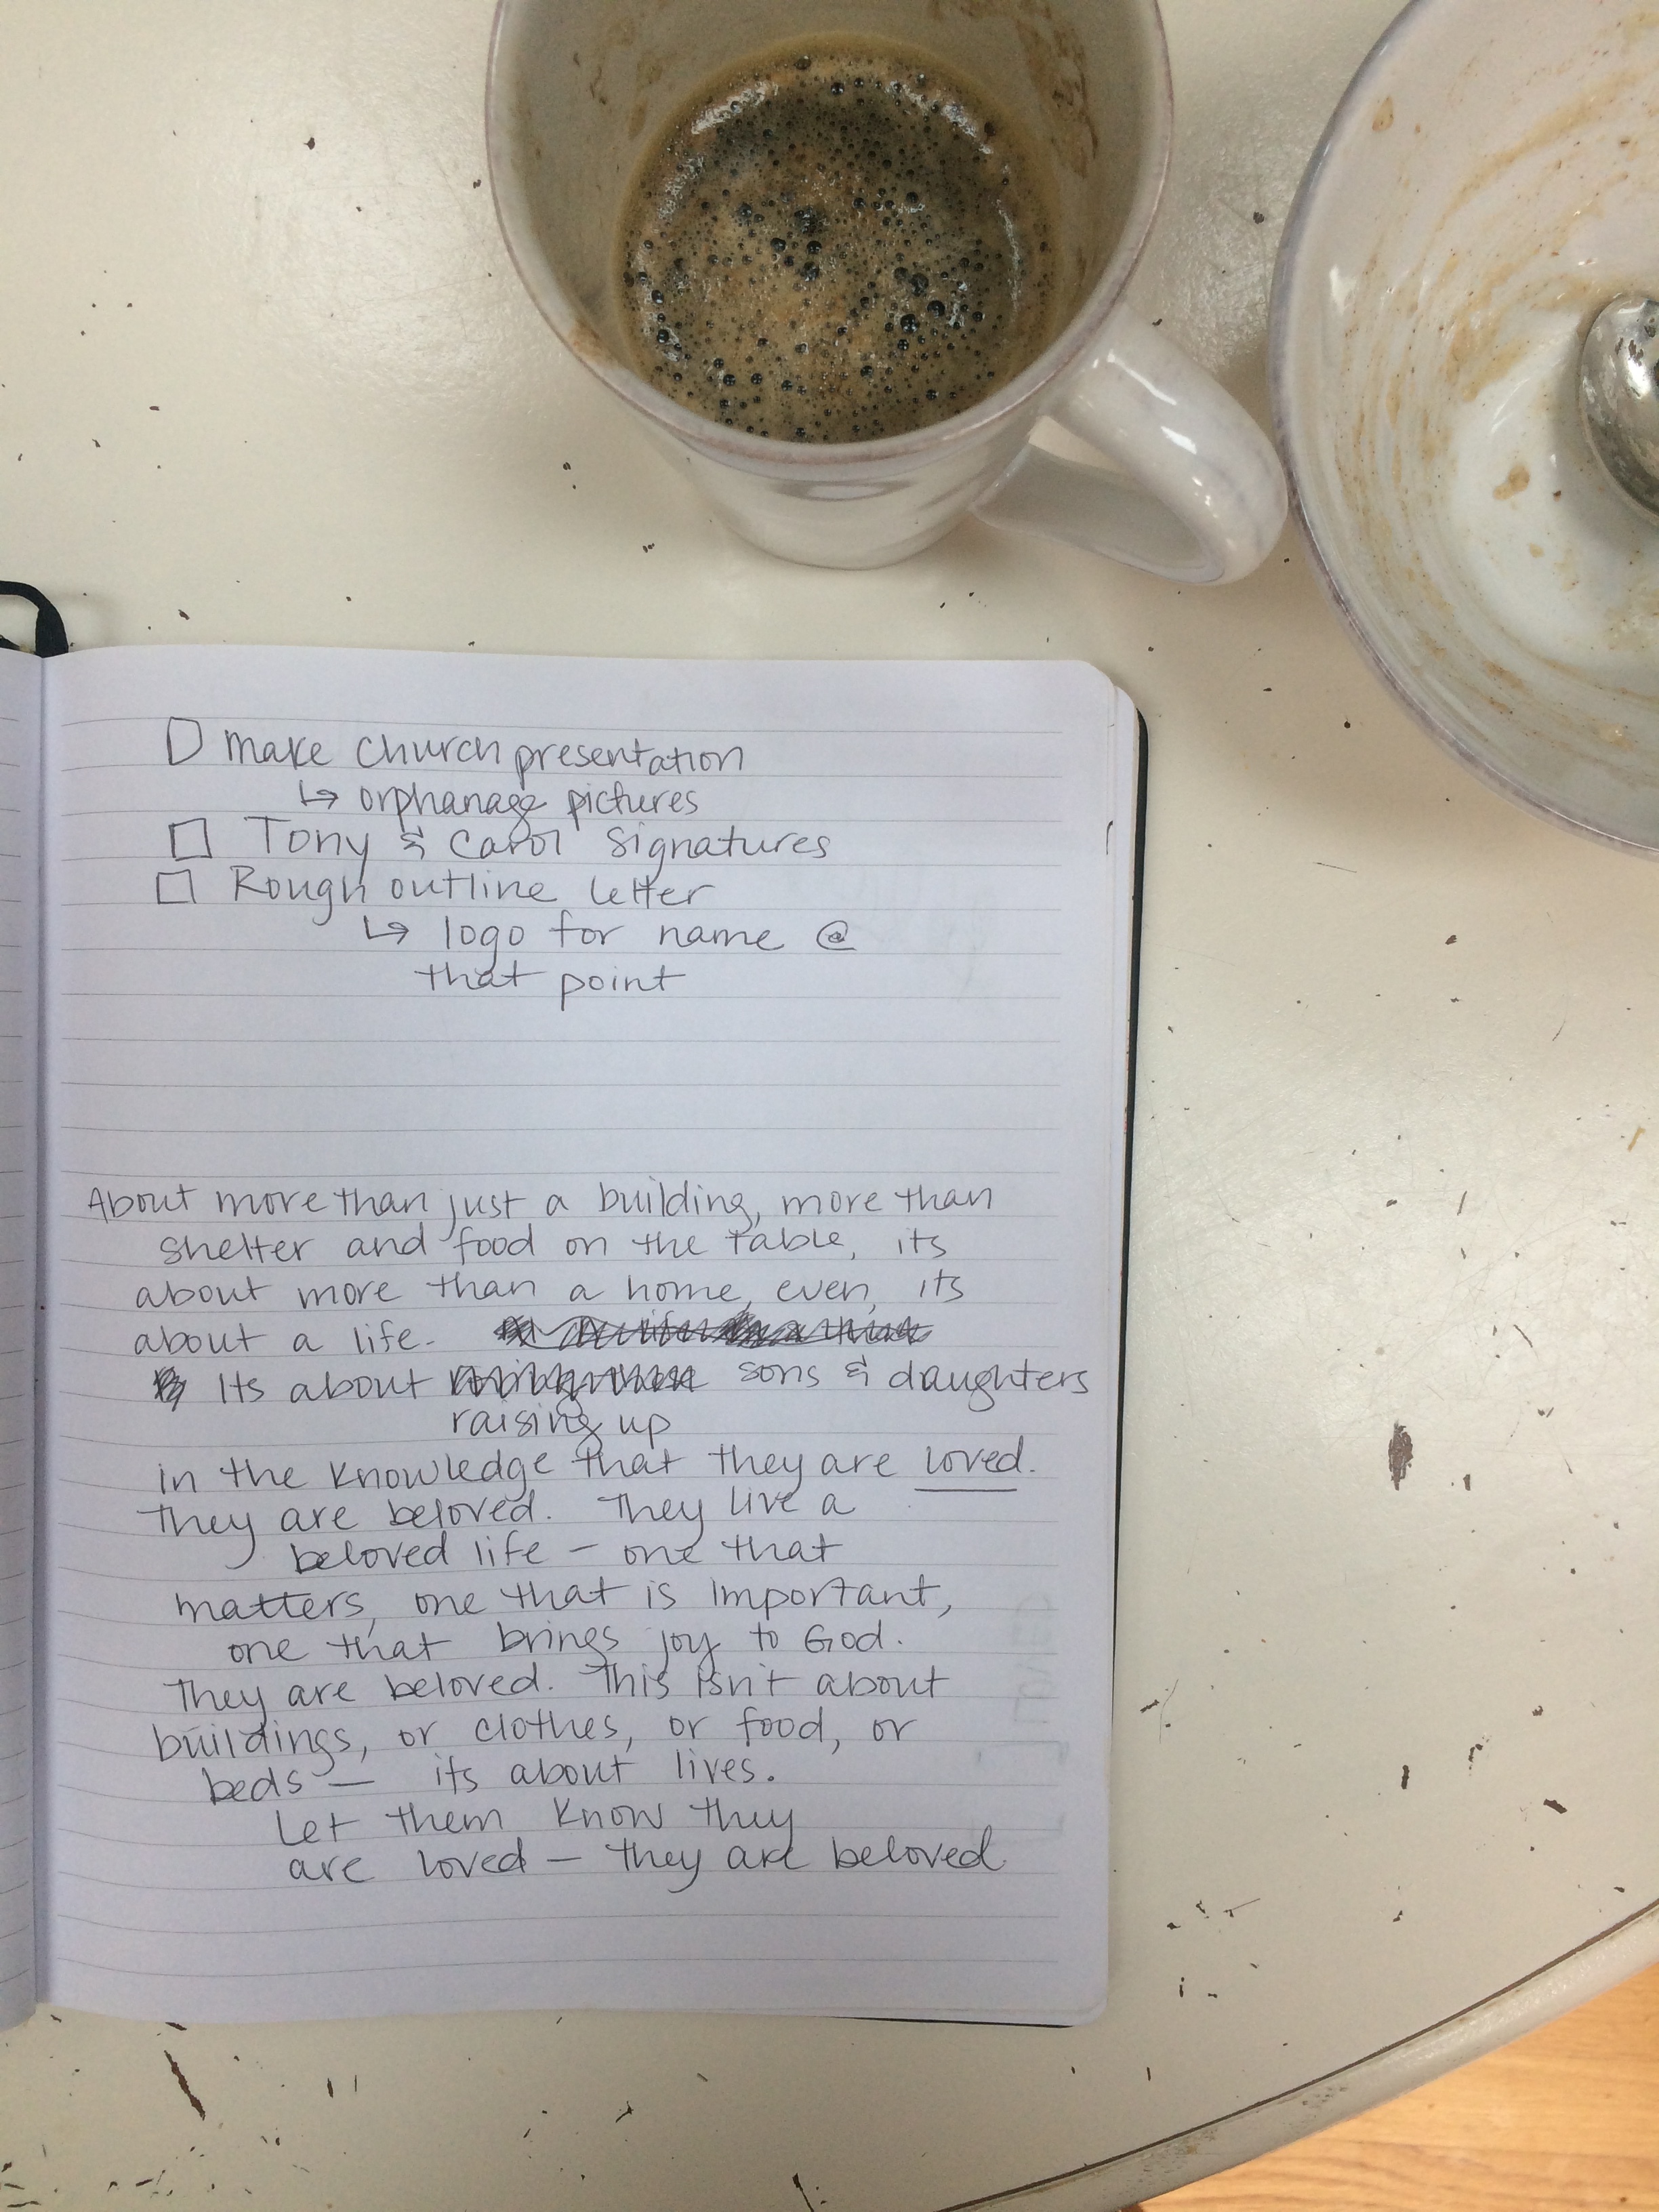 ☐ make church presentation
↳ orphanage pictures
☐ Tony & Carol signatures
☐ Rough outline letter
↳ logo for name @
that point
About more than just a building, more than
shelter and food on the table, its
about more than a home, even, its
about a life.
Its about sons & daughters
raising up
in the knowledge that they are loved.
They are beloved. They live a
beloved life – one that
matters, one that is important,
one that brings joy to God.
They are beloved. This isn't about
buildings, or clothes, or food, or
beds — its about lives.
Let them know they
are loved – they are beloved